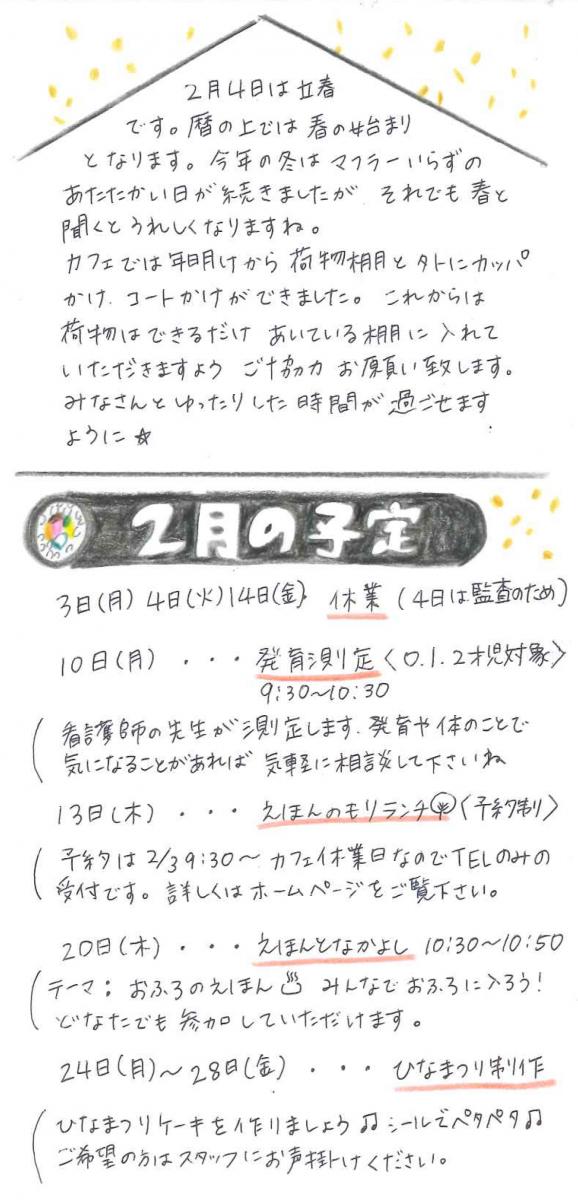 2月4日は立春
です。暦の上では春の始まり
となります。今年の冬はマフラーいらずの
あたたかい日が続きましたが それでも春と
聞くとうれしくなりますね。
カフェでは年明けから荷物棚と外にカッパ
かけ、コートかけができました。これからは
荷物はできるだけ あいている棚に入れて
いただきますよう ご協力お願い致します。
みなさんとゆったりした時間が過ごせます
ように☆
2月の予定
3日(月) 4日(火) 14日(金) 休業 (4日は監査のため)
10日(月) ・・・ 発育測定〈0.1.2才児対象〉
9:30〜10:30
看護師の先生が測定します。発育や体のことで
気になることがあれば 気軽に相談して下さいね
13日(木) ・・・ えほんのもりランチ〈予約制〉
予約は2/3 9:30〜 カフェ休業日なのでTELのみの
受付です。詳しくはホームページをご覧下さい。
20日(木) ・・・ えほんとなかよし 10:30〜10:50
テーマ：おふろのえほん♨ みんなでおふろに入ろう！
どなたでも参加していただけます。
24日(月)〜28日(金) ・・・ ひなまつり制作
ひなまつりケーキを作りましょう♫ シールでペタペタ♫
ご希望の方はスタッフにお声掛けください。